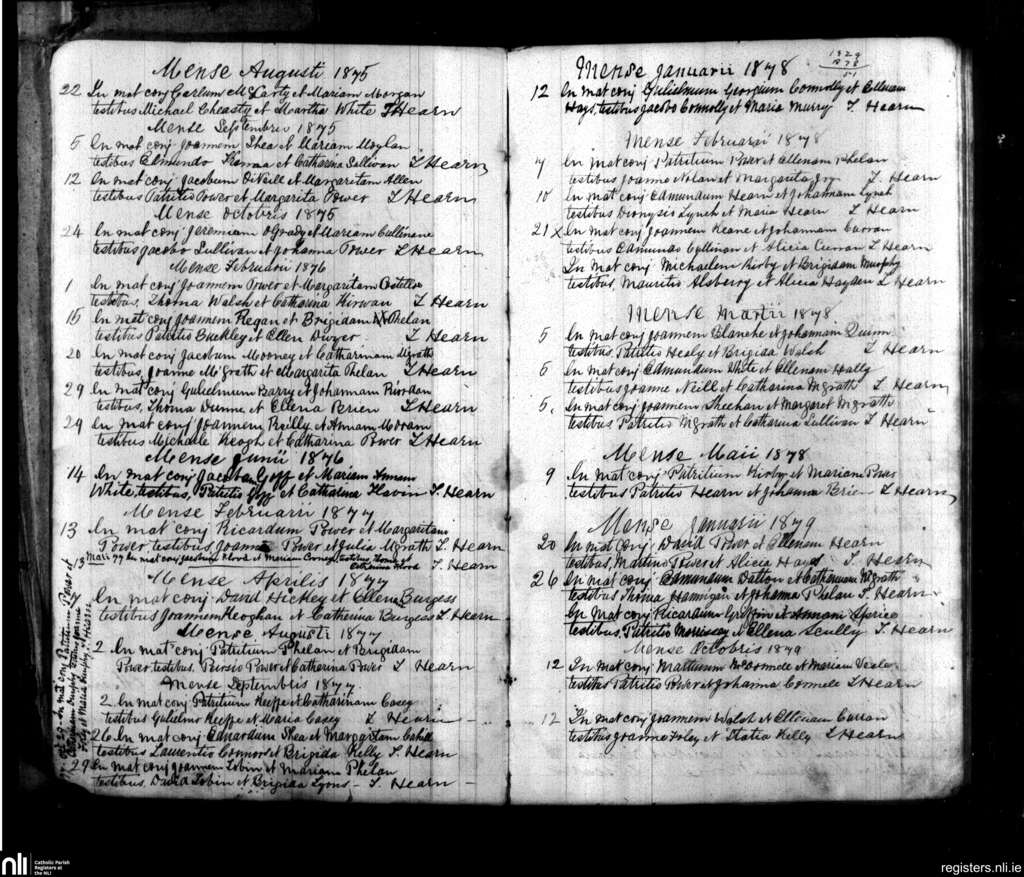 Mense Augusti 1875
22 In mat conj Carlum McCarty et Mariam Morgan
testibus Michael Cheasty et Martha White T Hearn
Mense Septembris 1875
5 In mat conj Joannem Shea et Mariam Moylan
testibus Edmundo et Catharina Sullivan T Hearn
12 In mat conj Jacobum O'Neill et Margaritam Allen
testibus Patritio Power et Margarita Power T Hearn
Mense Octobris 1875
24 In mat conj Jeremiam O'Grady et Mariam Cullinane
testibus Jacobo Sullivan et Johanna Power T Hearn
Mense Februarii 1876
1 In mat conj Joannem Power et Margaritam Costelloe
testibus, Thoma Walsh et Catharina Kirwan T Hearn
15 In mat conj Joannem Regan et Brigidam Phelan
testibus Patritio Buckley et Ellen Dwyer T Hearn
20 In mat conj Jacobum Mooney et Catharinam McGrath
testibus, Joanne McGrath et Margarita Phelan T Hearn
29 In mat conj Gulielmum Barry et Johannam Riordan
testibus, Thoma Dunne et Ellena Brien T Hearn
29 In mat conj Joannem Reilly et Annam Moran
testibus Michaele Keogh et Catharina Power T Hearn
Mense Junii 1876
14 In mat conj Jacobum Goff et Mariam
White, testibus, Patritio Goff et Catharina Flavin T. Hearn
Mense Februarii 1877
13 In mat conj Ricardum Power et Margaritam
Power, testibus, Joanne Power et Julia McGrath T. Hearn
13 Maii 77 In mat conj Flood et Mariam testibus Thoma
Catharina Flood T. Hearn
Mense Aprilis 1877
In mat conj David Hickey et Ellena Burgess
testibus Joannem Keoghan et Catherina Burgess T Hearn
Mense Augusti 1877
2 In mat conj Patritium Phelan et Brigidam
Power, testibus, Persio Power et Catharina Power T Hearn
Mense Septembris 1877
2 In mat conj Patritium Keeffe et Catharinam Casey
testibus Gulielmo Keeffe et Maria Casey T Hearn
26 In mat conj Ednardum Shea et Margaritam Cahill
testibus Laurentio Connors et Brigida Kelly T. Hearn
29 In mat conj Joannem Tobin et Mariam Phelan
testibus, David Tobin et Brigida Lyons - T. Hearn
In mat conj Patritium Power et
Murphy testibus Joanne
Foley et Maria Murphy T. Hearn
1829
1878
51
Mense Januarii 1878
12 In mat conj Gulielmum Georgium Connolly et Ellenam
Hays, testibus Jacobo Connolly et Maria Murry T Hearn
Mense Februarii 1878
7 In mat conj Patritium Power et Ellenam Phelan
testibus Joanne Nolan et Margarita Joy T. Hearn
10 In mat conj Edmundum Hearn et Johannam Lynch
testibus Dionysio Lynch et Maria Hearn T Hearn
21 X In mat conj Joannem Keane et Johannam Curran
testibus Edmundo Cullinan et Alicia Curran T Hearn
In mat conj Michaelem Kirby et Brigidam Murphy
testibus, Mauritio Alsberry et Alicia Hayden T Hearn
Mense Martii 1878
5 In mat conj Joannem Blanche et Johannam Quinn
testibus, Patritio Healy et Brigida Walsh T Hearn
5 In mat conj Edmundum White et Ellenam Hally
testibus Joanne Neill et Catharina McGrath T Hearn
5. In mat conj Joannem Sheehan et Margaret McGrath
testibus Patritio McGrath et Catharina Sullivan T Hearn
Mense Maii 1878
9 In mat conj Patritium Kirby et Mariam Power
testibus Patritio Hearn et Johanna Brien T. Hearn
Mense Januarii 1879
20 In mat conj David Power et Ellenam Hearn
testibus, Martino Power et Alicia Hayes T. Hearn
26 In mat conj Edmundum Dalton et Catharinam McGrath
testibus Thoma Hannigan et Johanna Phelan T. Hearn
In mat conj Ricardum Griffin et Annam
testibus, Patritio Morrissey et Ellena Scully T. Hearn
Mense Octobris 1879
12 In mat conj Martinum McCormele et Mariam Veale
testibus Patritio Power et Johanna Connele T Hearn
12 In mat conj Joannem Walsh et Ellenam Curran
testibus Joanne Foley et Statia Kelly T Hearn
nli
Catholic Parish
Registers at
the NLI
registers.nli.ie